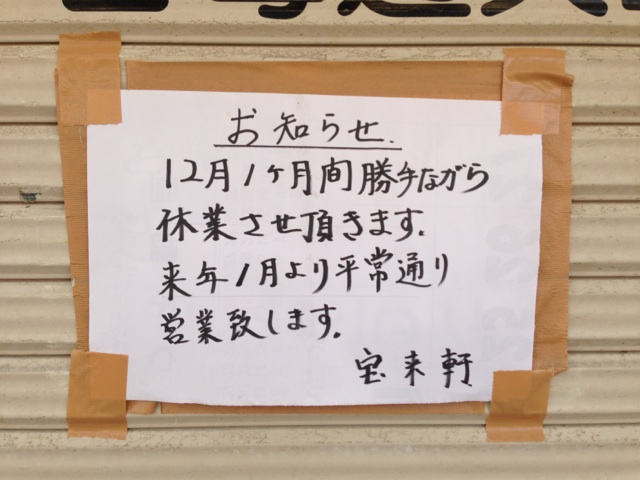 お知らせ.
12月1ケ月間勝手ながら
休業させ頂きます.
来年1月より平常通り
営業致します.
宝来軒